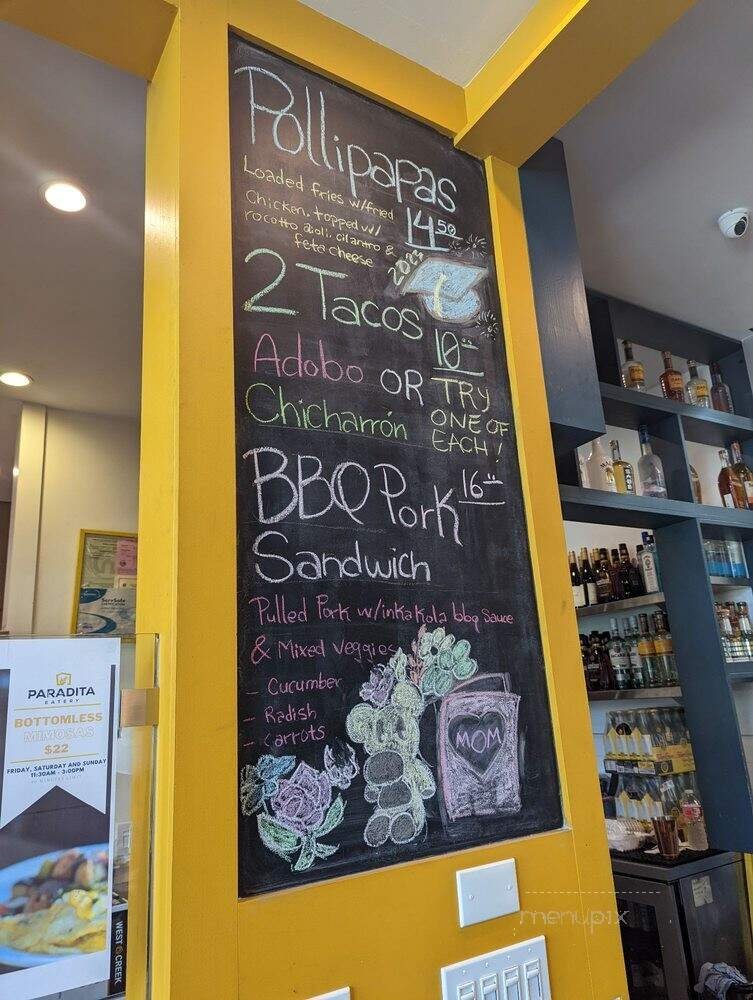 Pollipapas
Loaded fries w/fried
Chicken. topped w/
rocotto aioli. cilantro &
fete cheese
14.50
2024
2 Tacos
10.00
Adobo OR
Chicharrón
TRY
ONE OF
EACH!
BBQ Pork
16.00
Sandwich
Pulled Pork w/inka kola bbq Sauce
& Mixed Veggies
- Cucumber
- Radish
- Carrots
MOM
ServSafe
PARADITA
EATERY
BOTTOMLESS
MIMOSAS
$22
FRIDAY, SATURDAY AND SUNDAY
11:30AM - 3:00PM
WEST CREEK
menupix